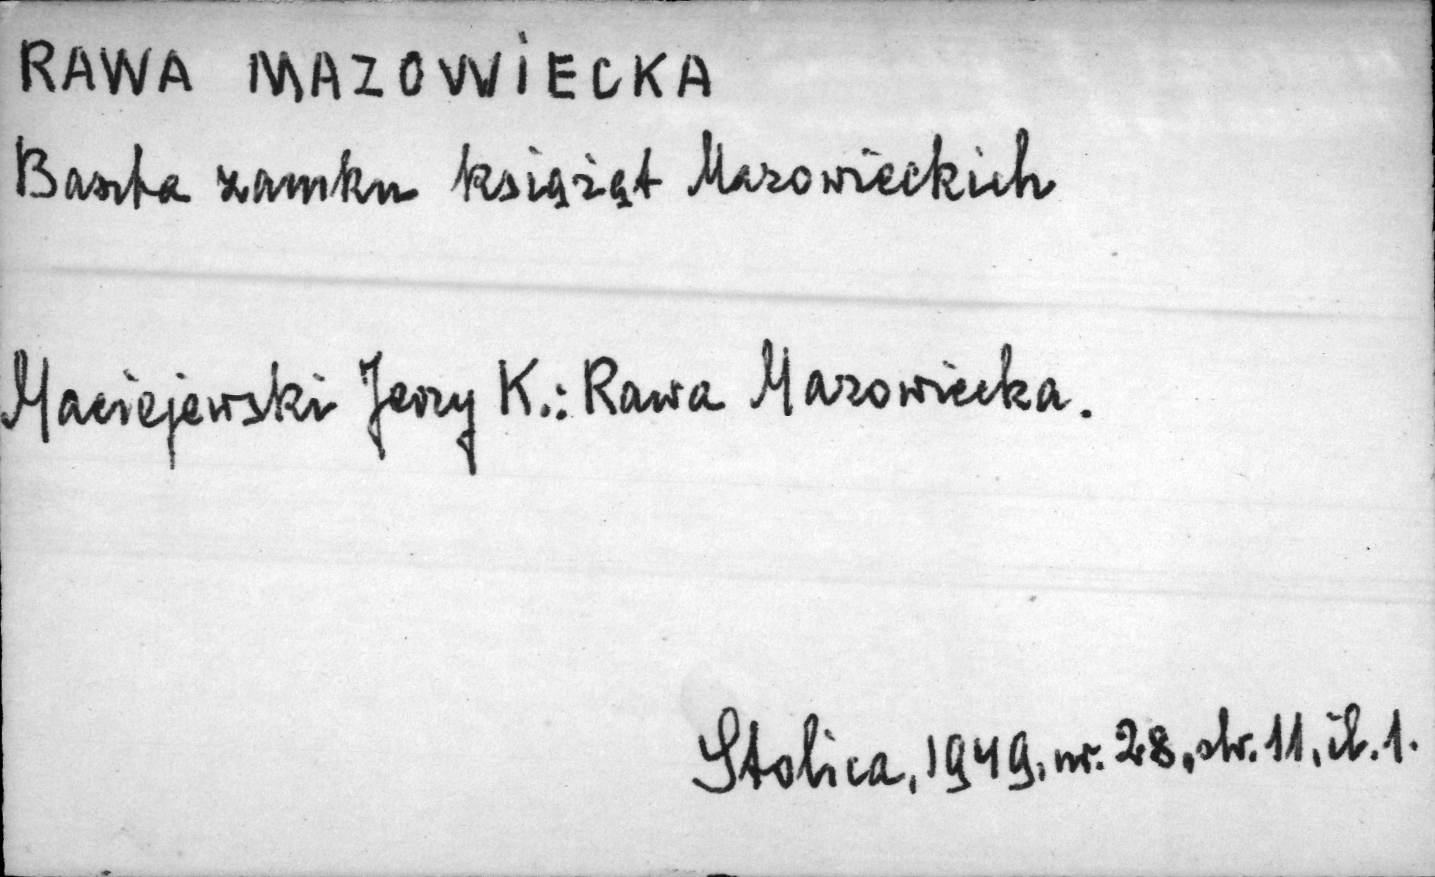 RAWA MAZOWIECKA
Baszta zamku książąt Mazowieckich
Maciejewski Jerzy K.: Rawa Mazowiecka.
Stolica, 1949, nr. 28, str. 11, il. 1.